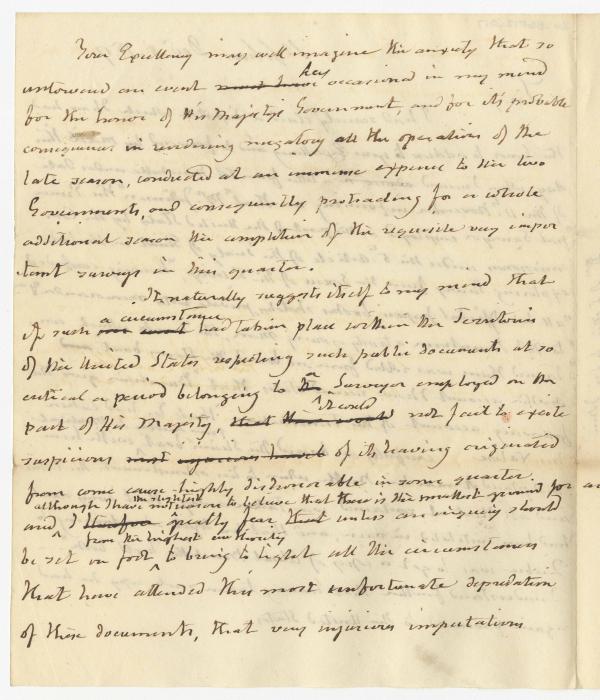 Your Excellency may well imagine the anxiety that so
untoward an event must have has occasioned in my mind
for the honor of His Majesty's Government, and for its probable
consequences in rendering nugatory all the operations of the
late season, conducted at an immense expence to the two
Governments, and consequently protracting for a whole
additional season the completion of the requisite very impor
tant surveys in this quarter.
It naturally suggests itself to my mind that
a circumstance
if such had taken place within the Territories
of the United States respecting such public documents at so
critical a period belonging to the a Surveyor employed on the
it could
part of His Majesty, that there would not fail to excite
suspicions most injurious of its having originated
from some course highly dishonorable in some quarter.
although I have not the slightest reason to believe that there is the smallest ground for
and I therefore greatly fear that unless an inquiry should
from the highest authority
be set on foot to bring to light all the circumstances
that have attended this most unfortunate depredation
of these documents, that very injurious imputations